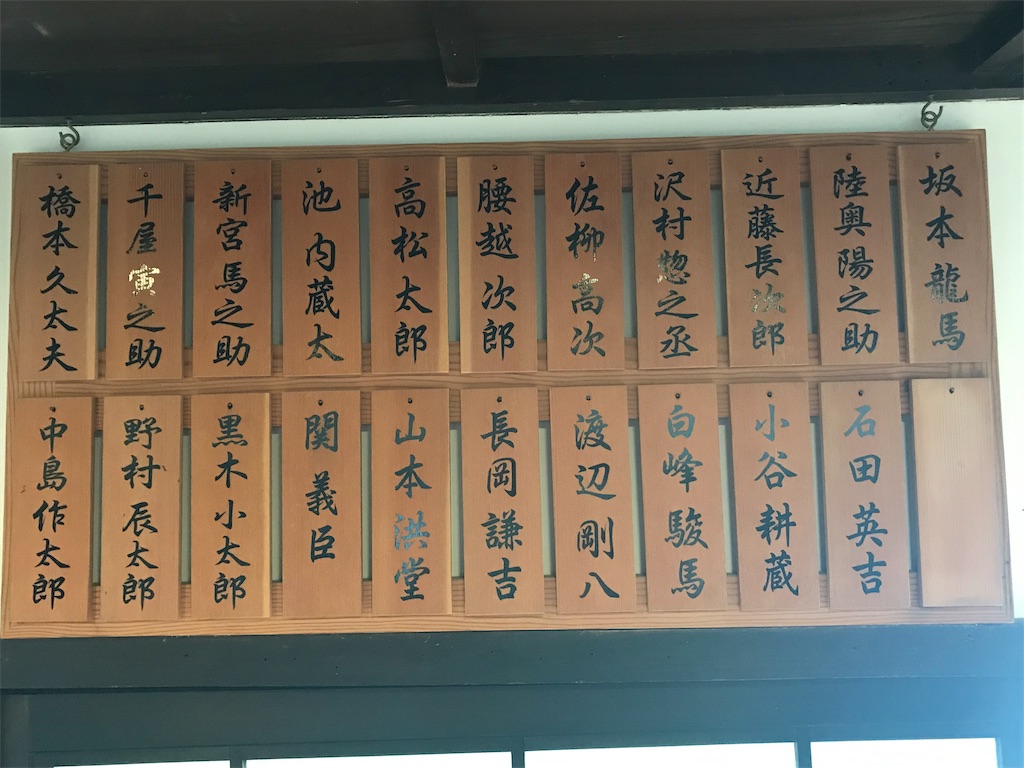 坂本龍馬
陸奥陽之助
近藤長次郎
沢村惣之丞
佐柳高次
腰越次郎
高松太郎
池内蔵太
新宮馬之助
千屋寅之助
橋本久太夫
石田英吉
小谷耕蔵
白峰駿馬
渡辺剛八
長岡謙吉
山本洪堂
関義臣
黒木小太郎
野村辰太郎
中島作太郎